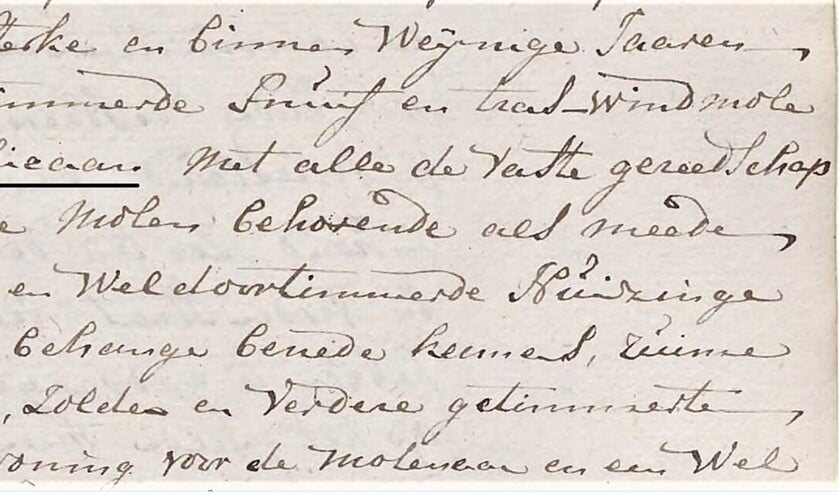 terke en binnen Weÿnige Jaaren
immerde Snuif en tras-windmole
licaan Met alle de Vaste gereedschap
e Molen behorende als meede
en Weldoortimmerde Huizinge
behange benede kamers, ruime
, Zolder en Verdere getimmerte
woning voor de Molenaar en een Wel